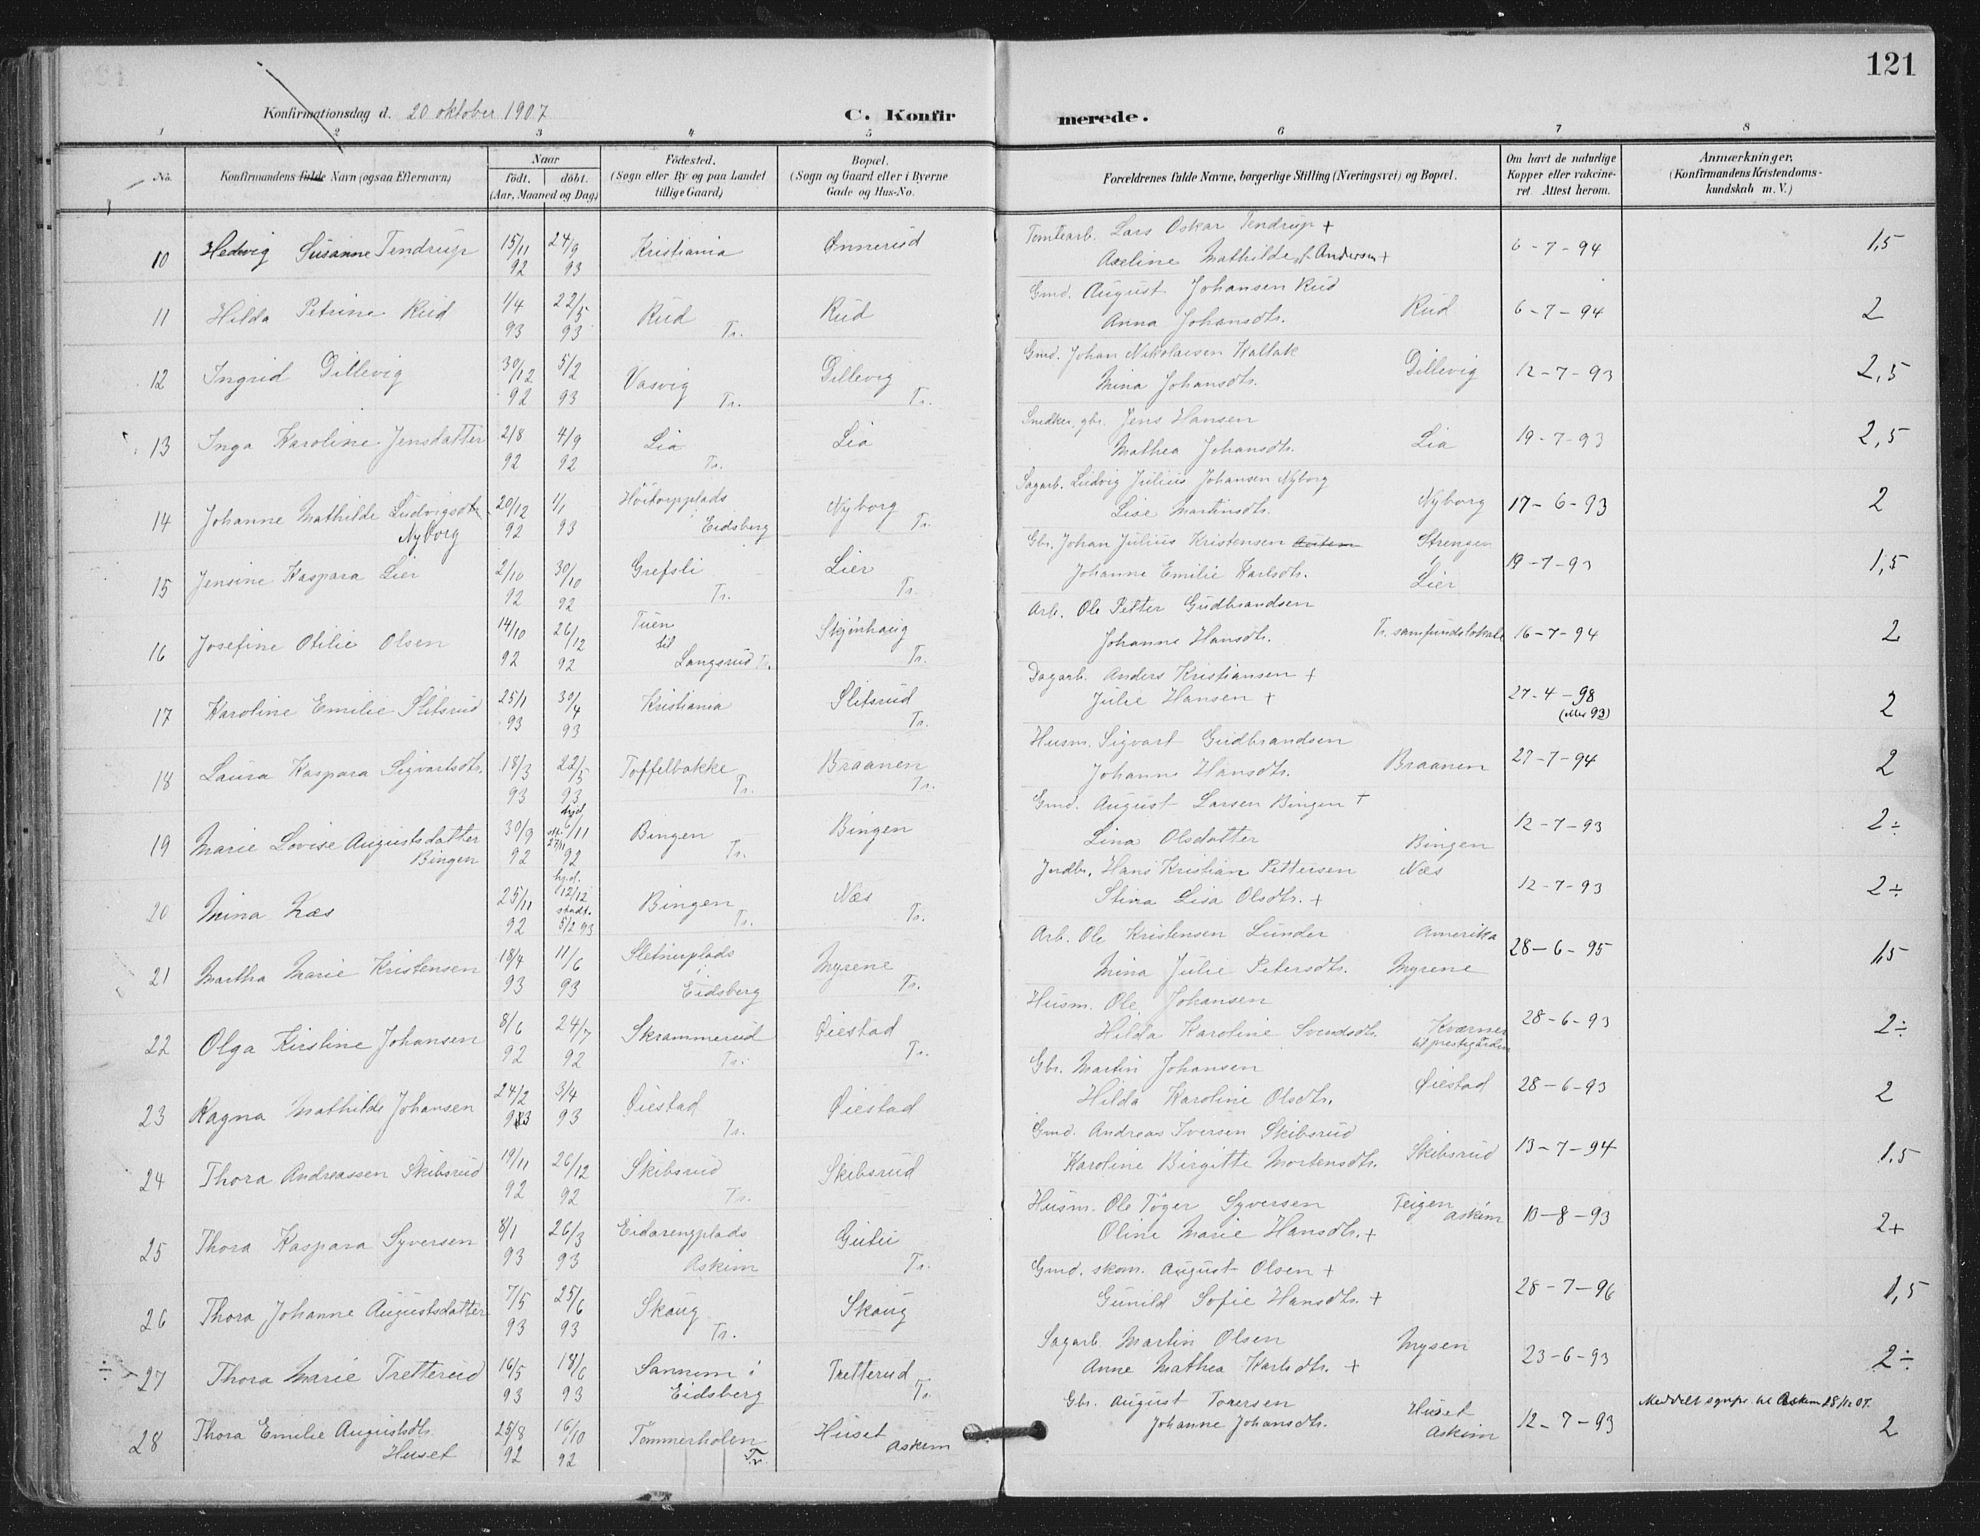 121
Konfirmationsdag d. 20 oktober 1907
C. Konfirmerede.
1 2 3 4 5 6 7 8
No.
Konfirmandens fulde Navn (ogsaa Efternavn)
Naar
födt. döbt.
(Aar, Maaned og Dag)
Födested.
(Sogn eller By og paa Landet
tillige Gaard)
Bopæl.
(Sogn og Gaard eller i Byerne
Gade og Hus-No.
Forældrenes fulde Navne, borgerlige Stilling (Næringsvei) og Bopæl.
Om havt de naturlige
Kopper eller vakcine-
ret. Attest herom.
Anmærkninger.
(Konfirmandens Kristendoms-
kundskab m. V.)
10 Hedvig Susanne Tendrup 15/11 92 24/9 93 Kristiania Önnerud
Tomtearb. Lars Oskar Tendrup +
Axeline Mathilde f. Andersen + 6-7-94 1,5
11 Hilda Petrine Rud 1/4 93 22/5 93 Rud Tr. Rud
Gmd. August Johansen Rud
Anna Johansdtr. Rud 6-7-94 2
12 Ingrid Dillevig 30/12 92 5/2 93 Vasvig Tr. Dillevig Tr.
Gmd. Johan Nikolaisen Kallak
Mina Johansdtr. Dillevig 12-7-93 2,5
13 Inga Karoline Jensdatter 2/8 92 4/9 92 Lia Tr. Lia
Snedker, gbr. Jens Hansen
Mathea Johansdtr. Lia 19-7-93 2,5
14 Johanne Mathilde Ludvigsdtr. Nyborg 20/12 92 1/1 93 Höitorpplads Eidsberg Nyborg Tr.
Sagarb. Ludvig Julius Johansen Nyborg
Lise Martinsdtr. Nyborg 17-6-93 2
15 Jensine Kaspara Lier 2/10 92 30/10 92 Grefsli Tr. Lier Tr.
Gbr. Johan Julius Kristensen Strengen
Johanne Emilie Karlsdtr. Lier 19-7-93 1,5
16 Josefine Otilie Olsen 14/10 92 26/12 92 Tuen til Langsrud Tr. Skjönhaug Tr.
Arb. Ole Petter Gudbrandsen
Johanne Hansdtr. Tr. samfundslokale 16-7-94 2
17 Karoline Emilie Slitsrud 25/1 93 30/4 93 Kristiania Slitsrud Tr.
Dagarb. Anders Kristiansen +
Julie Hansen + 27-4-98
(eller 93) 2
18 Laura Kaspara Sigvartsdtr. 18/3 93 22/5 93 Toffelbakke Tr. Braanen Tr.
Husm. Sigvart Gudbrandsen
Johanne Hansdtr. Braanen 27-7-94 2
19 Marie Lovise Augustsdatter Bingen 30/9 92 hjd. 6/11 27/11 92 Bingen Tr. Bingen
Gmd. August Larsen Bingen +
Lina Olsdatter Bingen 12-7-93 2÷
20 Mina Næs 25/11 92 hjd. 12/12 stadf. 5/2 93 Bingen Tr. Næs Tr.
Jordbr. Hans Kristian Pettersen Næs
Stina Lisa Olsdtr. + 12-7-93 2÷
21 Martha Marie Kristensen 18/4 93 11/6 93 Sletnerplads Eidsberg Myrene Tr.
Arb. Ole Kristensen Lunder Amerika
Mina Julie Petersdtr. Myrene 28-6-95 1,5
22 Olga Kirstine Johansen 8/6 92 24/7 92 Skrammerud Tr. Öiestad Tr.
Husm. Ole Johansen
Hilda Karoline Svendsdtr. Kværnes
til prestegården 28-6-93 2÷
23 Ragna Mathilde Johansen 24/2 93 3/4 93 Öiestad Tr. Öiestad
Gbr. Martin Johansen
Hilda Karoline Olsdtr. Öiestad 28-6-93 2
24 Thora Andreassen Skibsrud 19/11 92 26/12 92 Skibsrud Tr. Skibsrud
Gmd. Andreas Iversen Skibsrud
Karoline Birgitte Mortensdtr. Skibsrud 13-7-94 1.5
25 Thora Kaspara Syversen 8/1 93 26/3 93 Eidarengplads Askim Gutu Tr.
Husm. Ole Töger Syversen Teigen Askim
Oline Marie Hansdtr. + 10-8-93 2+
26 Thora Johanne Augustsdatter 7/5 93 25/6 93 Skaug Tr. Skaug
Gmd. skom. August Olsen +
Gunild Sofie Hansdtr. + 28-7-96 1,5
÷ 27 Thora Marie Tretterud 16/5 93 18/6 93 Sannum i Eidsberg Tretterud Tr.
Sagarb. Martin Olsen Mysen
Anne Mathea Karlsdtr. + 23-6-93 2÷
28 Thora Emilie Augustsdtr. Huset 25/8 92 16/10 92 Tömmerholen Tr. Huset Askim
Gbr. August Toresen Huset
Johanne Johansdtr. Askim 12-7-93 Meddelt til Askim 2